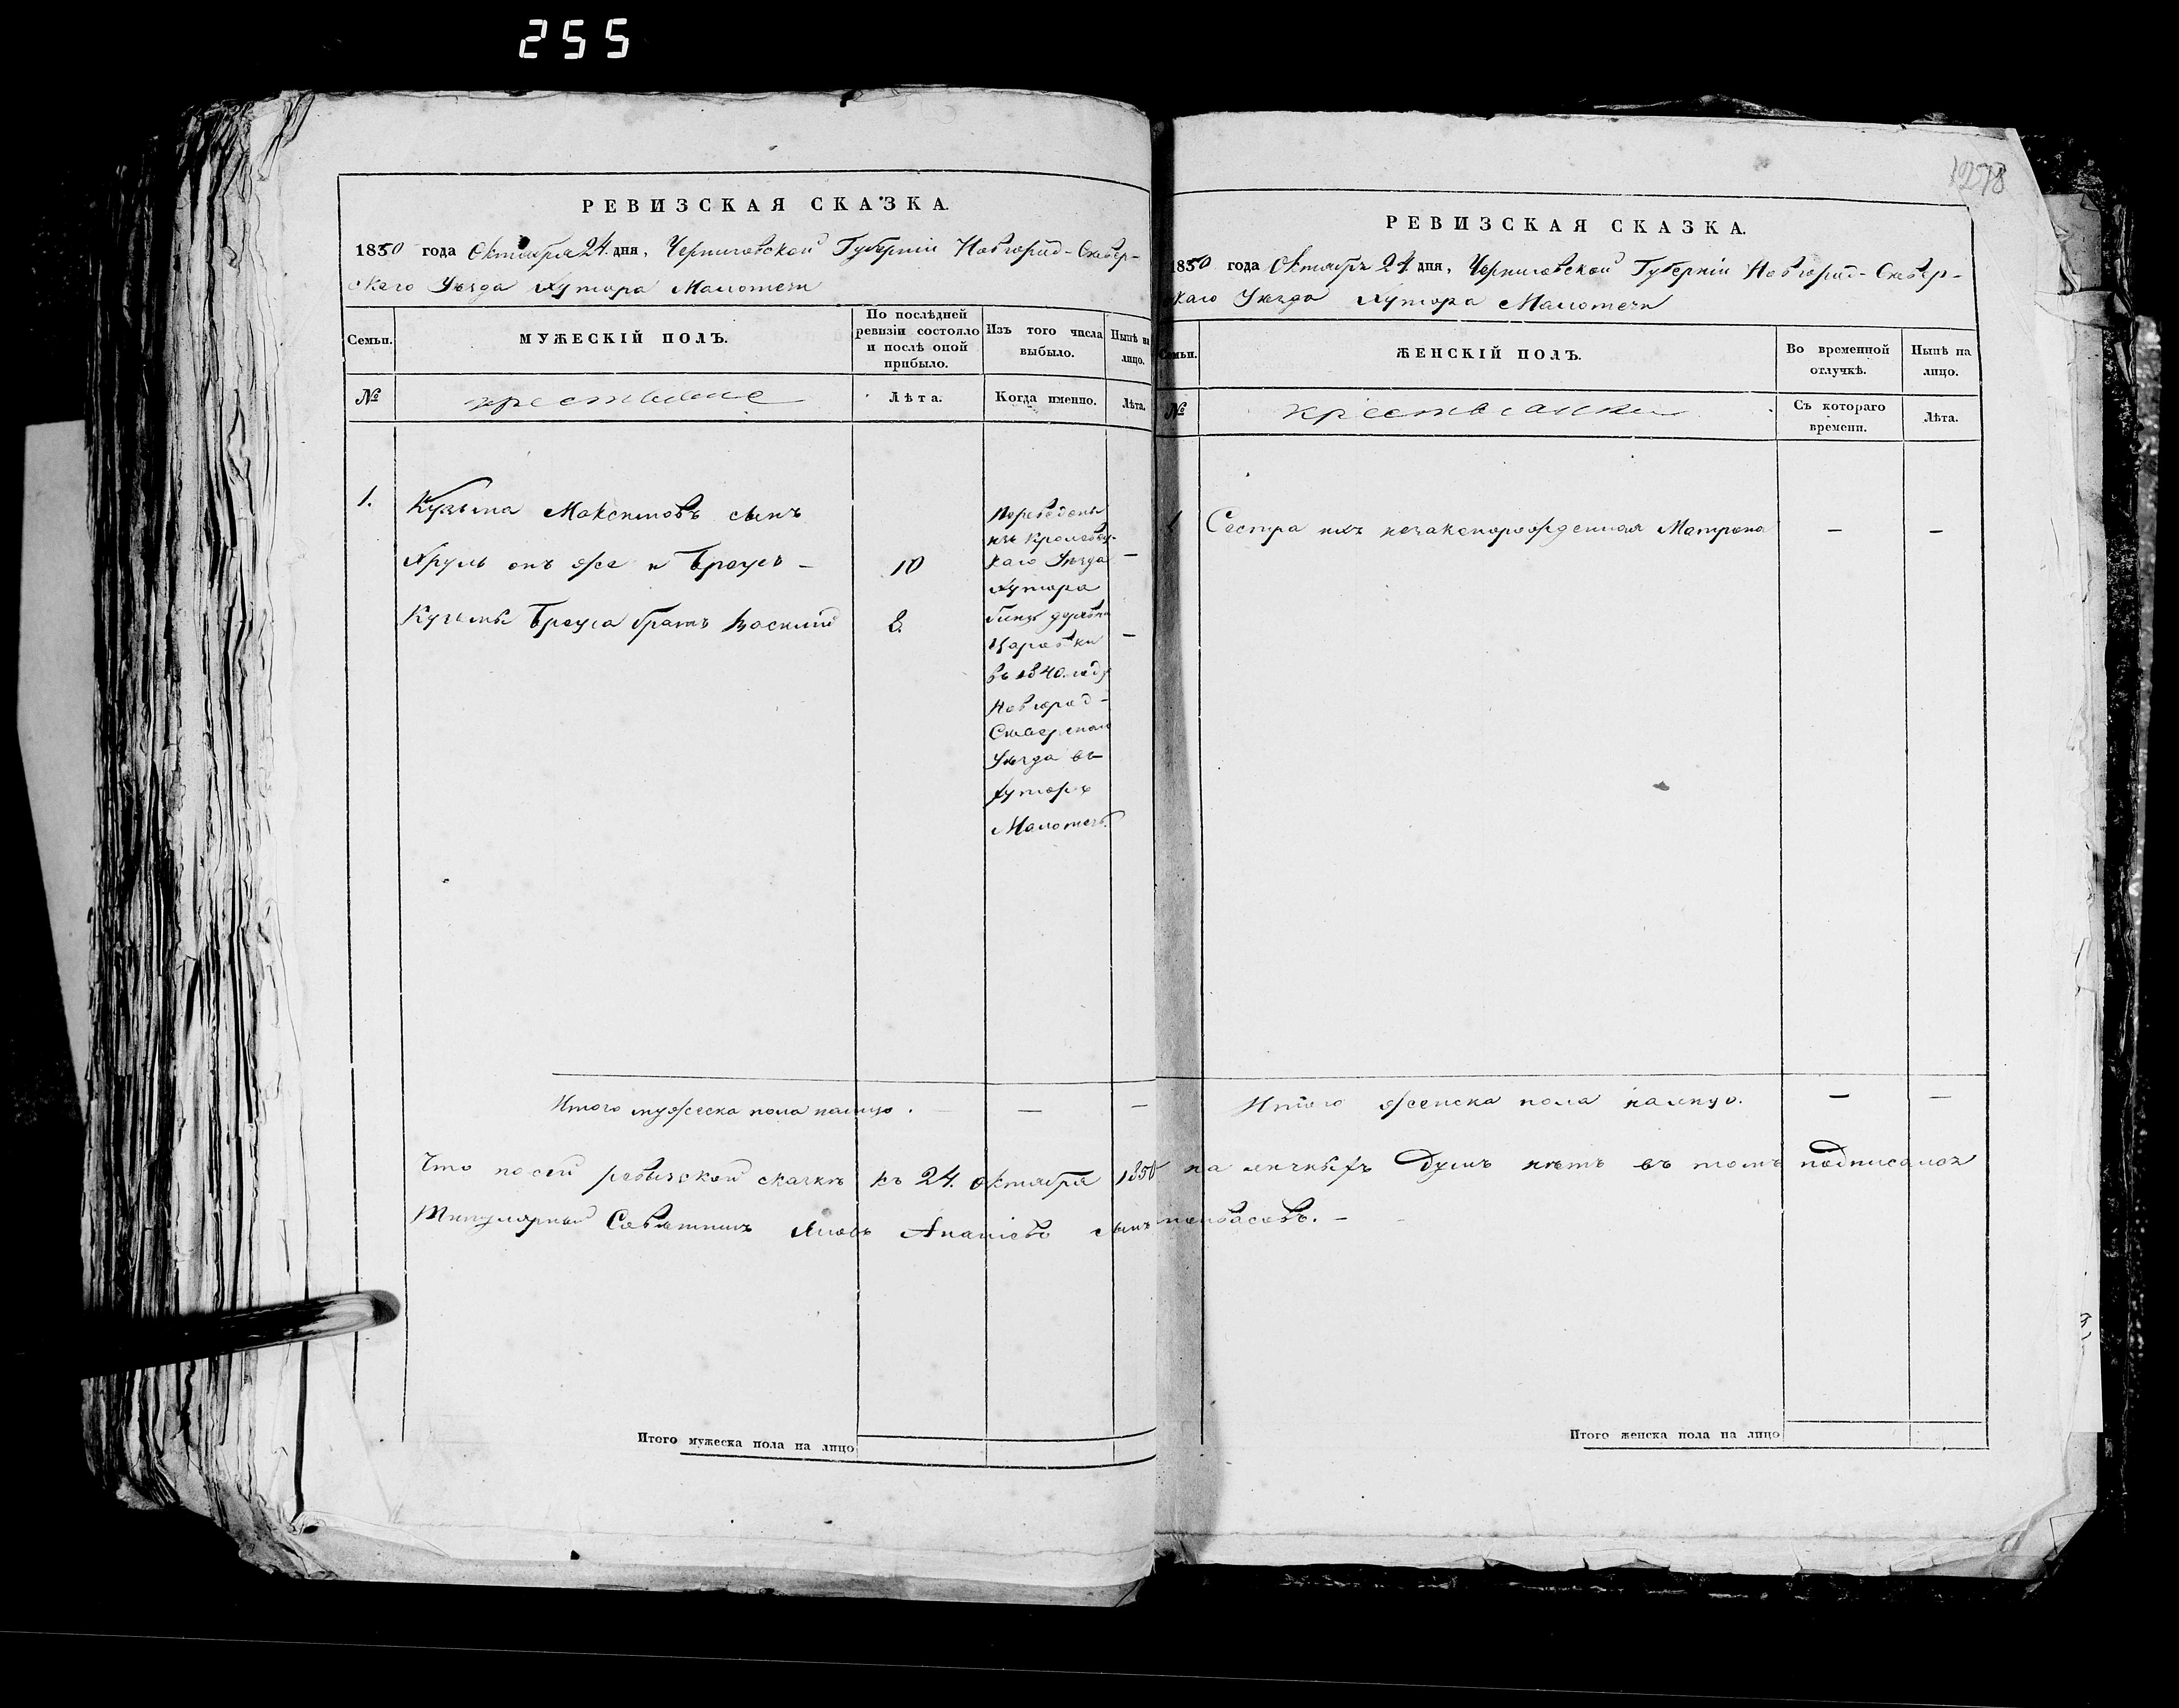 255
РЕВИЗСКАЯ СКАЗКА.
1850 года Октября 24. дня, Черниговской Губерніи Новгород-Сѣвер-
скаго Уѣзда Хутора Малотечи
Семьи.
МУЖЕСКІЙ ПОЛЪ.
По послѣдней ревизіи состояло и послѣ оной прибыло.
Изъ того числа выбыло.
Нынѣ на лицо.
№
крестьяне
Лѣта.
Когда именно.
Лѣта.
1.
Кузьма Максимовъ сынъ
Хруль онъ же и Браусъ –
10
–
Кузьмы Брауса братъ Василій
2.
–
Переведены
изъ Кролевец-
каго Уѣзда
Хутора
близъ деревни
въ 1840 году
Новгород-
Сѣверскаго
Уѣзда въ
Хуторъ
Малотечь.
Итого мужеска пола налицо.
–
–
Что по сей ревизской сказкѣ къ 24. Октября 1850
Титулярный Совѣтникъ Ананіевъ сынъ
Итого мужеска пола на лицо
1278
РЕВИЗСКАЯ СКАЗКА.
1850 года Октября 24 дня, Черниговской Губерніи Новгород-Сѣвер-
скаго Уѣзда Хутора Малотечи
Семьи.
ЖЕНСКІЙ ПОЛЪ.
Во временной отлучкѣ.
Нынѣ на лицо.
№
крестьянки
Съ котораго времени.
Лѣта.
1
Сестра ихъ незаконорожденная Матрона
–
–
Итого женска пола налицо.
–
–
наличныхъ Душъ нѣтъ въ томъ подписался
Итого женска пола на лицо